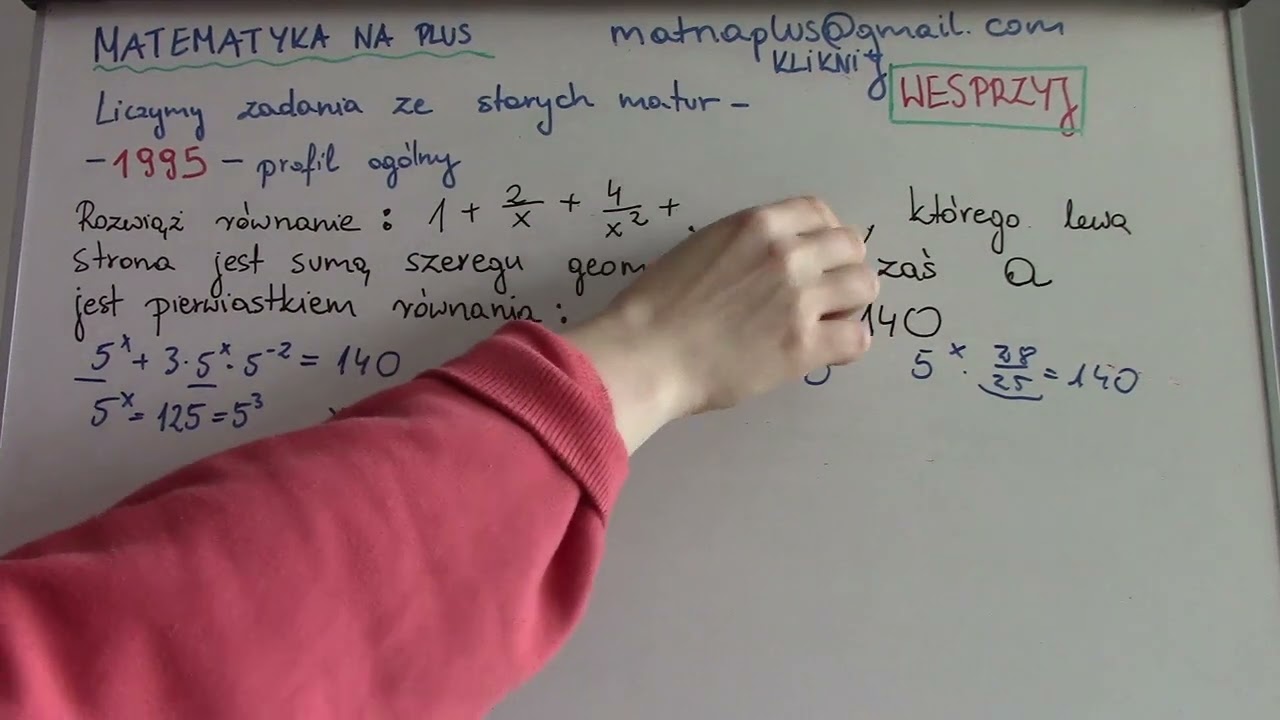 MATEMATYKA NA PLUS
matnaplus@gmail.com
KLIKNIJ
WESPRZYJ
Liczymy zadania ze starych matur -
- 1995 - profil ogólny
Rozwiąż równanie : 1 + 2/x + 4/x² + , którego lewa
strona jest sumą szeregu zaś a
jest pierwiastkiem równania : 140
5^x + 3·5^x·5^-2 = 140
5^x · 28/25 = 140
5^x = 125 = 5^3